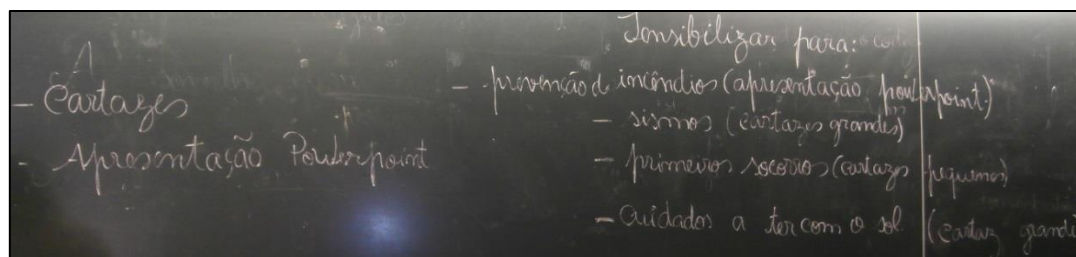 - Cartazes
- Apresentação Powerpoint
Sensibilizar para:
- prevenção de incêndios (apresentação powerpoint)
- sismos (cartazes grandes)
- primeiros socorros (cartazes pequenos)
- Cuidados a ter com o sol (cartaz grande